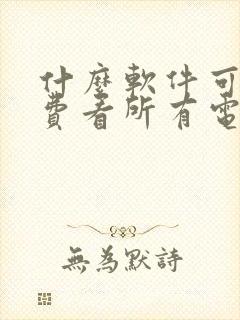 什麼軟件可
費看所有電
無為默詩